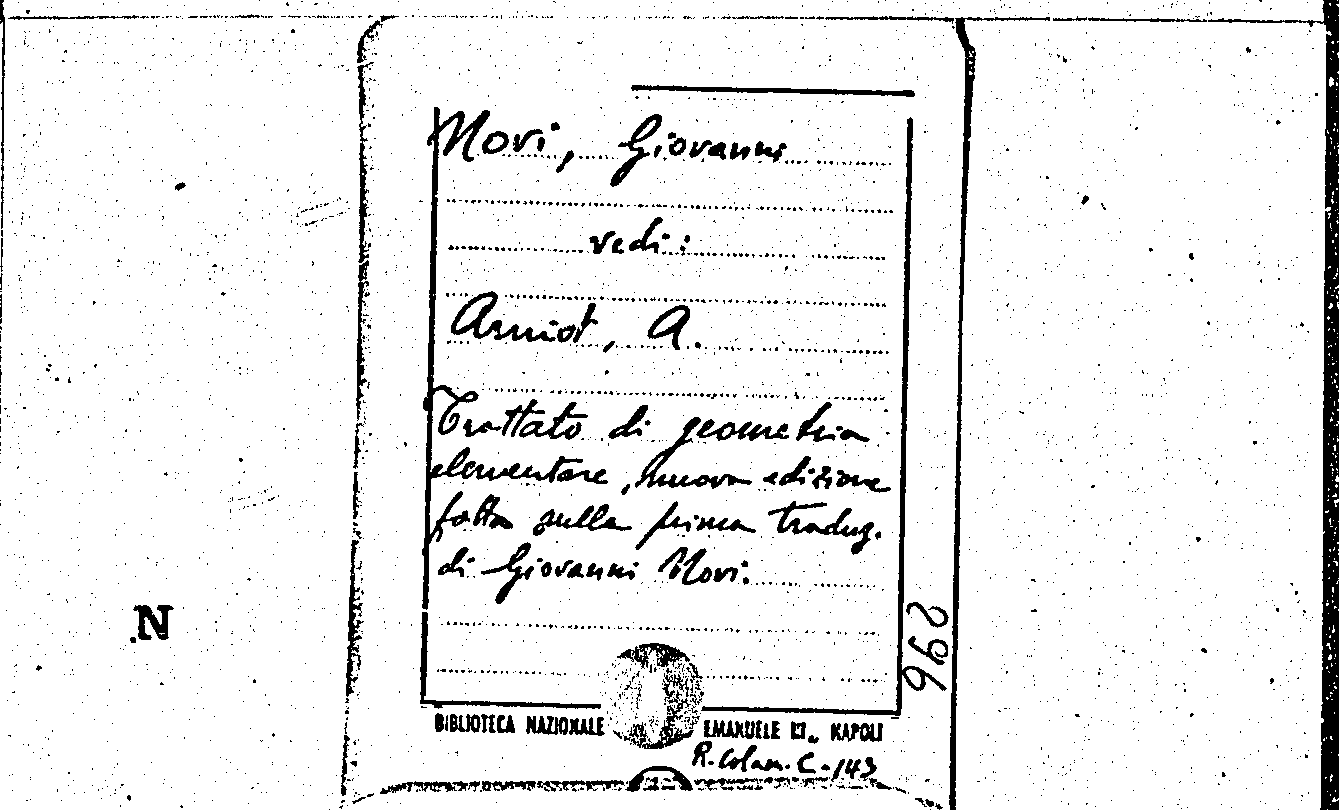 Novi, Giovanni
vedi:
Amiot, A.
Trattato di geometria
elementare, nuova edizione
fatta sulla prima traduz.
di Giovanni Novi.
N
296
BIBLIOTECA NAZIONALE EMANUELE III. NAPOLI
R. C-143